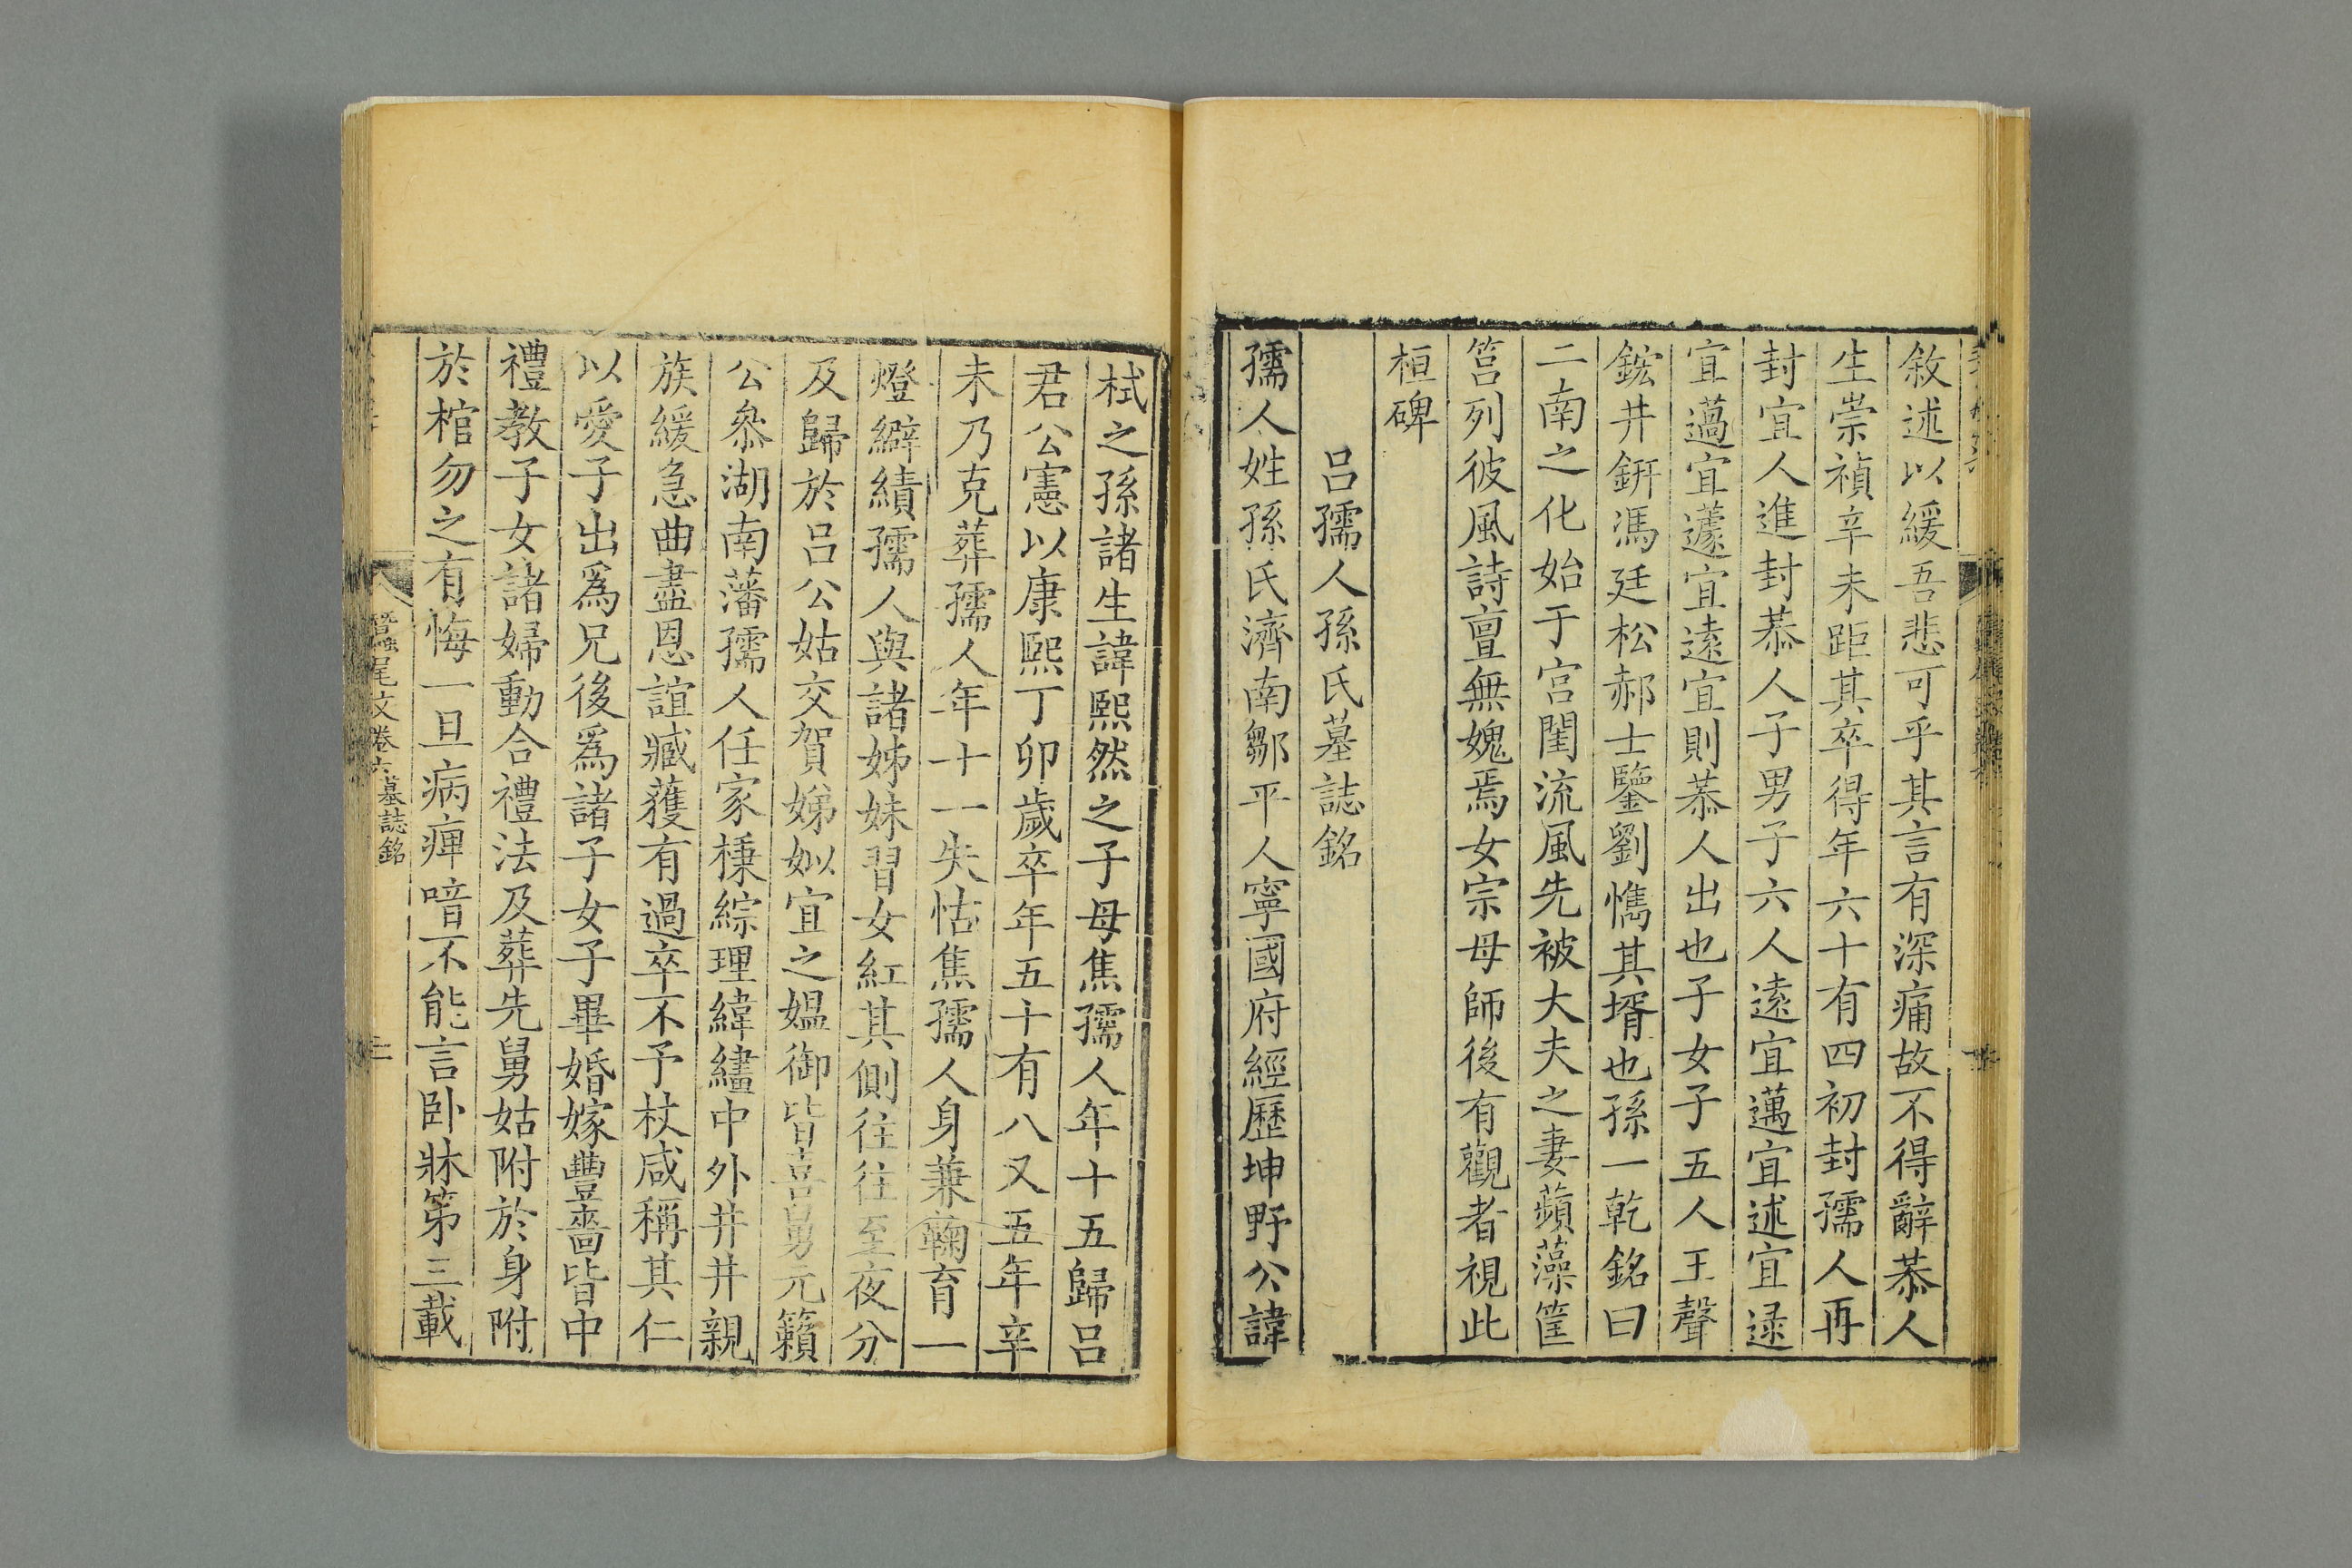 敘述以緩吾悲可乎其言有深痛故不得辭恭人
生崇禎辛未距其卒得年六十有四初封孺人再
封宜人進封恭人子男子六人遠宜邁宜述宜逯
宜邁宜蘧宜遠宜則恭人出也子女子五人王聲
鋐井銒馮廷松郝士鑒劉㦎其壻也孫一乾銘曰
二南之化始于宮闈流風先被大夫之妻蘋藻筐
筥列彼風詩亶無媿焉女宗母師後有觀者視此
桓碑
呂孺人孫氏墓誌銘
孺人姓孫氏濟南鄒平人寧國府經歷坤野公諱
栻之孫諸生諱熙然之子母焦孺人年十五歸呂
君公憲以康熙丁卯歲卒年五十有八又五年辛
未乃克葬孺人年十一失怙焦孺人身兼鞠育一
燈辟績孺人與諸姊妹習女紅其側往往至夜分
及歸於呂公姑交賀娣姒宜之媼御皆喜舅元籟
公叅湖南藩孺人任家棅綜理緯繣中外井井親
族緩急曲盡恩誼臧獲有過卒不予杖咸稱其仁
以愛子出爲兄後爲諸子女子畢婚嫁豐嗇皆中
禮教子女諸婦動合禮法及葬先舅姑附於身附
於棺勿之有悔一旦病痺喑不能言卧牀第三載
蠶尾文卷六墓誌銘